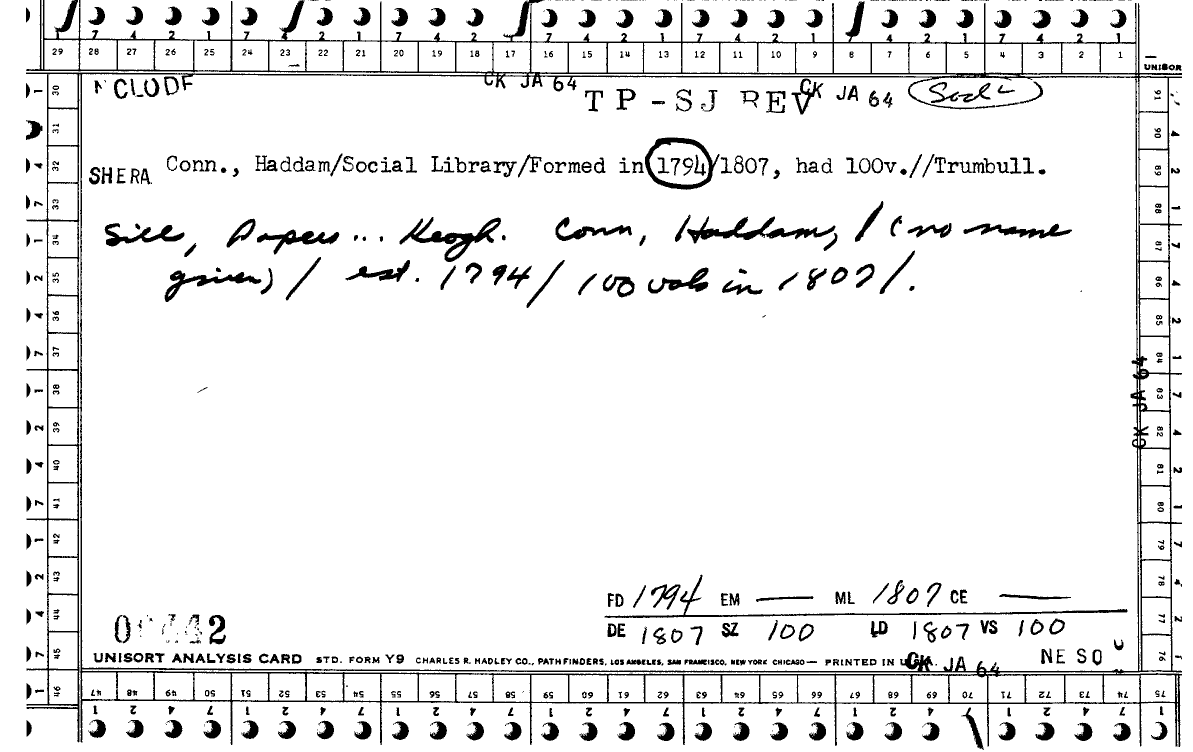 7 4 2 1 7 4 2 1 7 4 2 1 7 4 2 1 7 4 2 1 7 4 2 1 7 4 2 1
29 28 27 26 25 24 23 22 21 20 19 18 17 16 15 14 13 12 11 10 9 8 7 6 5 4 3 2 1
UNISOR
NCLUDE CK JA 64 TP-SJ REV CK JA 64
SHERA Conn., Haddam/Social Library/Formed in 1794/1807, had 100v.//Trumbull.
Sill, Papers... Keogh. Conn, Haddam, / (no name
given) / est. 1794 / 100 vols in 1807/.
30 31 32 33 34 35 36 37 38 39 40 41 42 43 44 45 46
91 90 89 88 87 86 85 84 83 82 81 80 79 78 77 76
CK JA 64
FD 1794 EM — ML 1807 CE —
DE 1807 SZ 100 LD 1807 VS 100
NE SO
UNISORT ANALYSIS CARD STD. FORM Y9 CHARLES R. HADLEY CO., PATHFINDERS, LOS ANGELES, SAN FRANCISCO, NEW YORK CHICAGO— PRINTED IN U.S.A.
CK JA 64
47 48 49 50 51 52 53 54 55 56 57 58 59 60 61 62 63 64 65 66 67 68 69 70 71 72 73 74 75
1 2 4 7 1 2 4 7 1 2 4 7 1 2 4 7 1 2 4 7 1 2 4 7 1 2 4 7 1